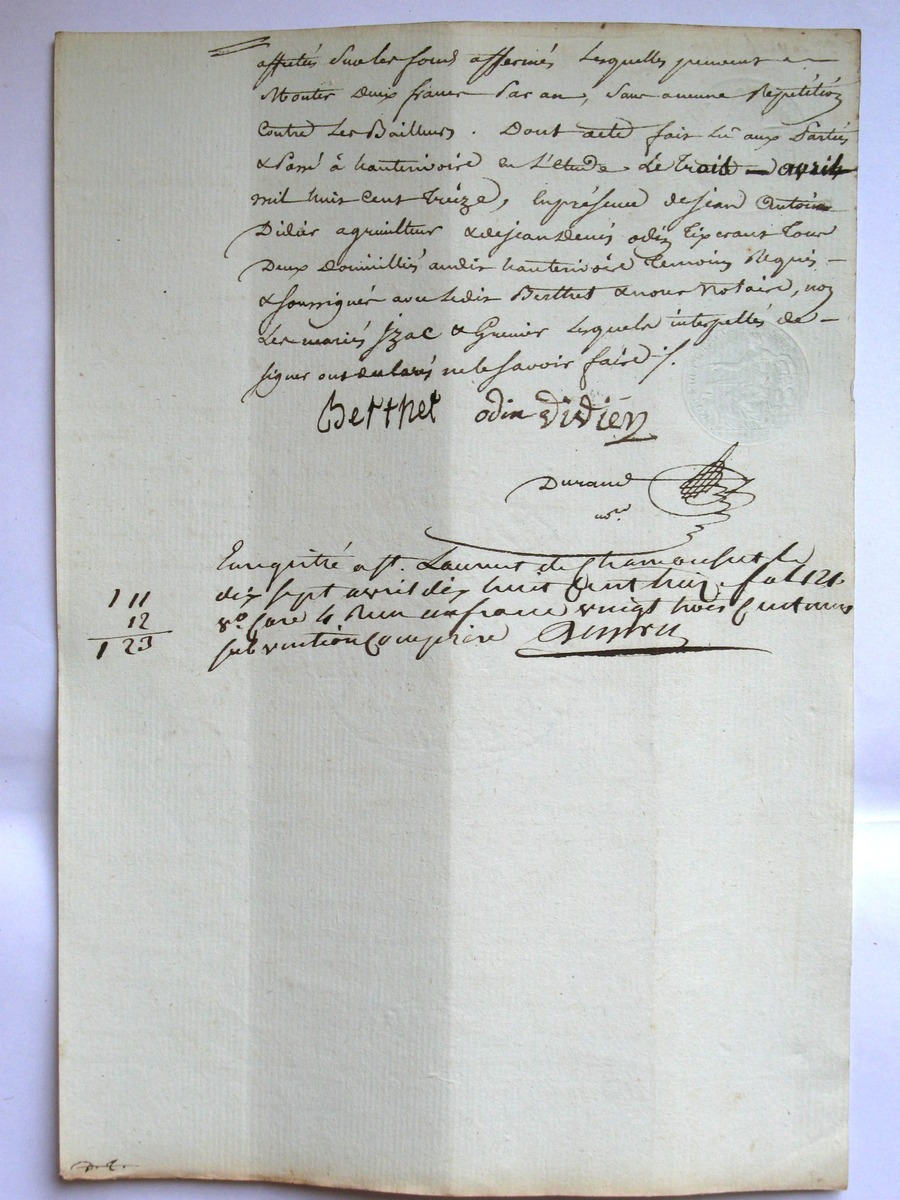 affectés sur les fonds affermés lesquelles peuvent a
Monter Deux francs Par an, sans aucune Répétition
Contre Les Bailleurs. Dont acte fait Lû aux Parties
& Passé à hauterivoire en L'étude Le trois avril
mil huit Cent treize, En présence de jean Antoine
Didier agriculteur & de jean Denis odin tixerant tous
Deux Domiciliés audit hauterivoire témoins Requis
& soussignés avec ledit Berthet & nous Notaire, non
Les mariés Izac & Grenier lesquels interpellés de
signer ont declaré ne le savoir faire ./.
Berthet odin Didier
Durand
nore
Enregistré a St. Laurent de Chamousset le
dix sept avril dix huit Cent treize fol 121
vo Case 4 Reçu un franc vingt trois Centimes
subvention Comprise
1 11
12
1 23
D. L.